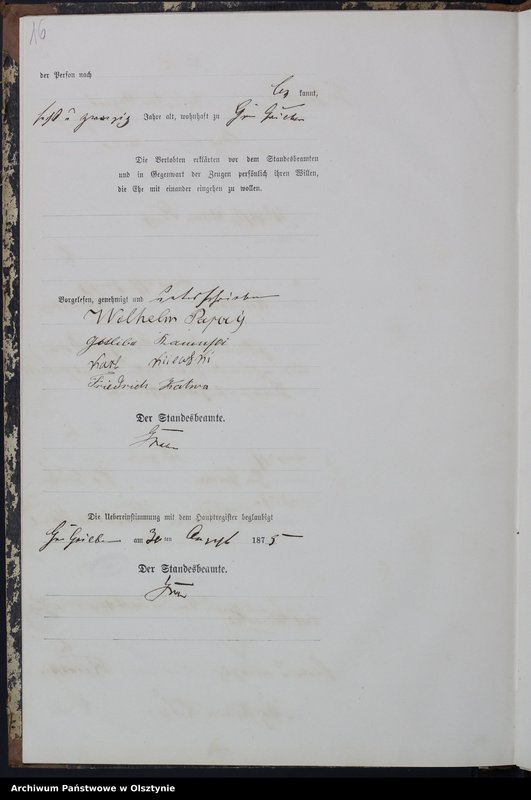 16
der Person nach
be kannt,
sechs u zwanzig Jahre alt, wohnhaft zu Gr
Die Verlobten erklärten vor dem Standesbeamten
und in Gegenwart der Zeugen persönlich ihren Willen,
die Ehe mit einander eingehen zu wollen.
Vorgelesen, genehmigt und unterschrieben
Wilhelm
Gottlibe
Karl
Friedrich
Der Standesbeamte.
Die Uebereinstimmung mit dem Hauptregister beglaubigt
Gr am 30 ten August 1875
Der Standesbeamte.
Archiwum Państwowe w Olsztynie